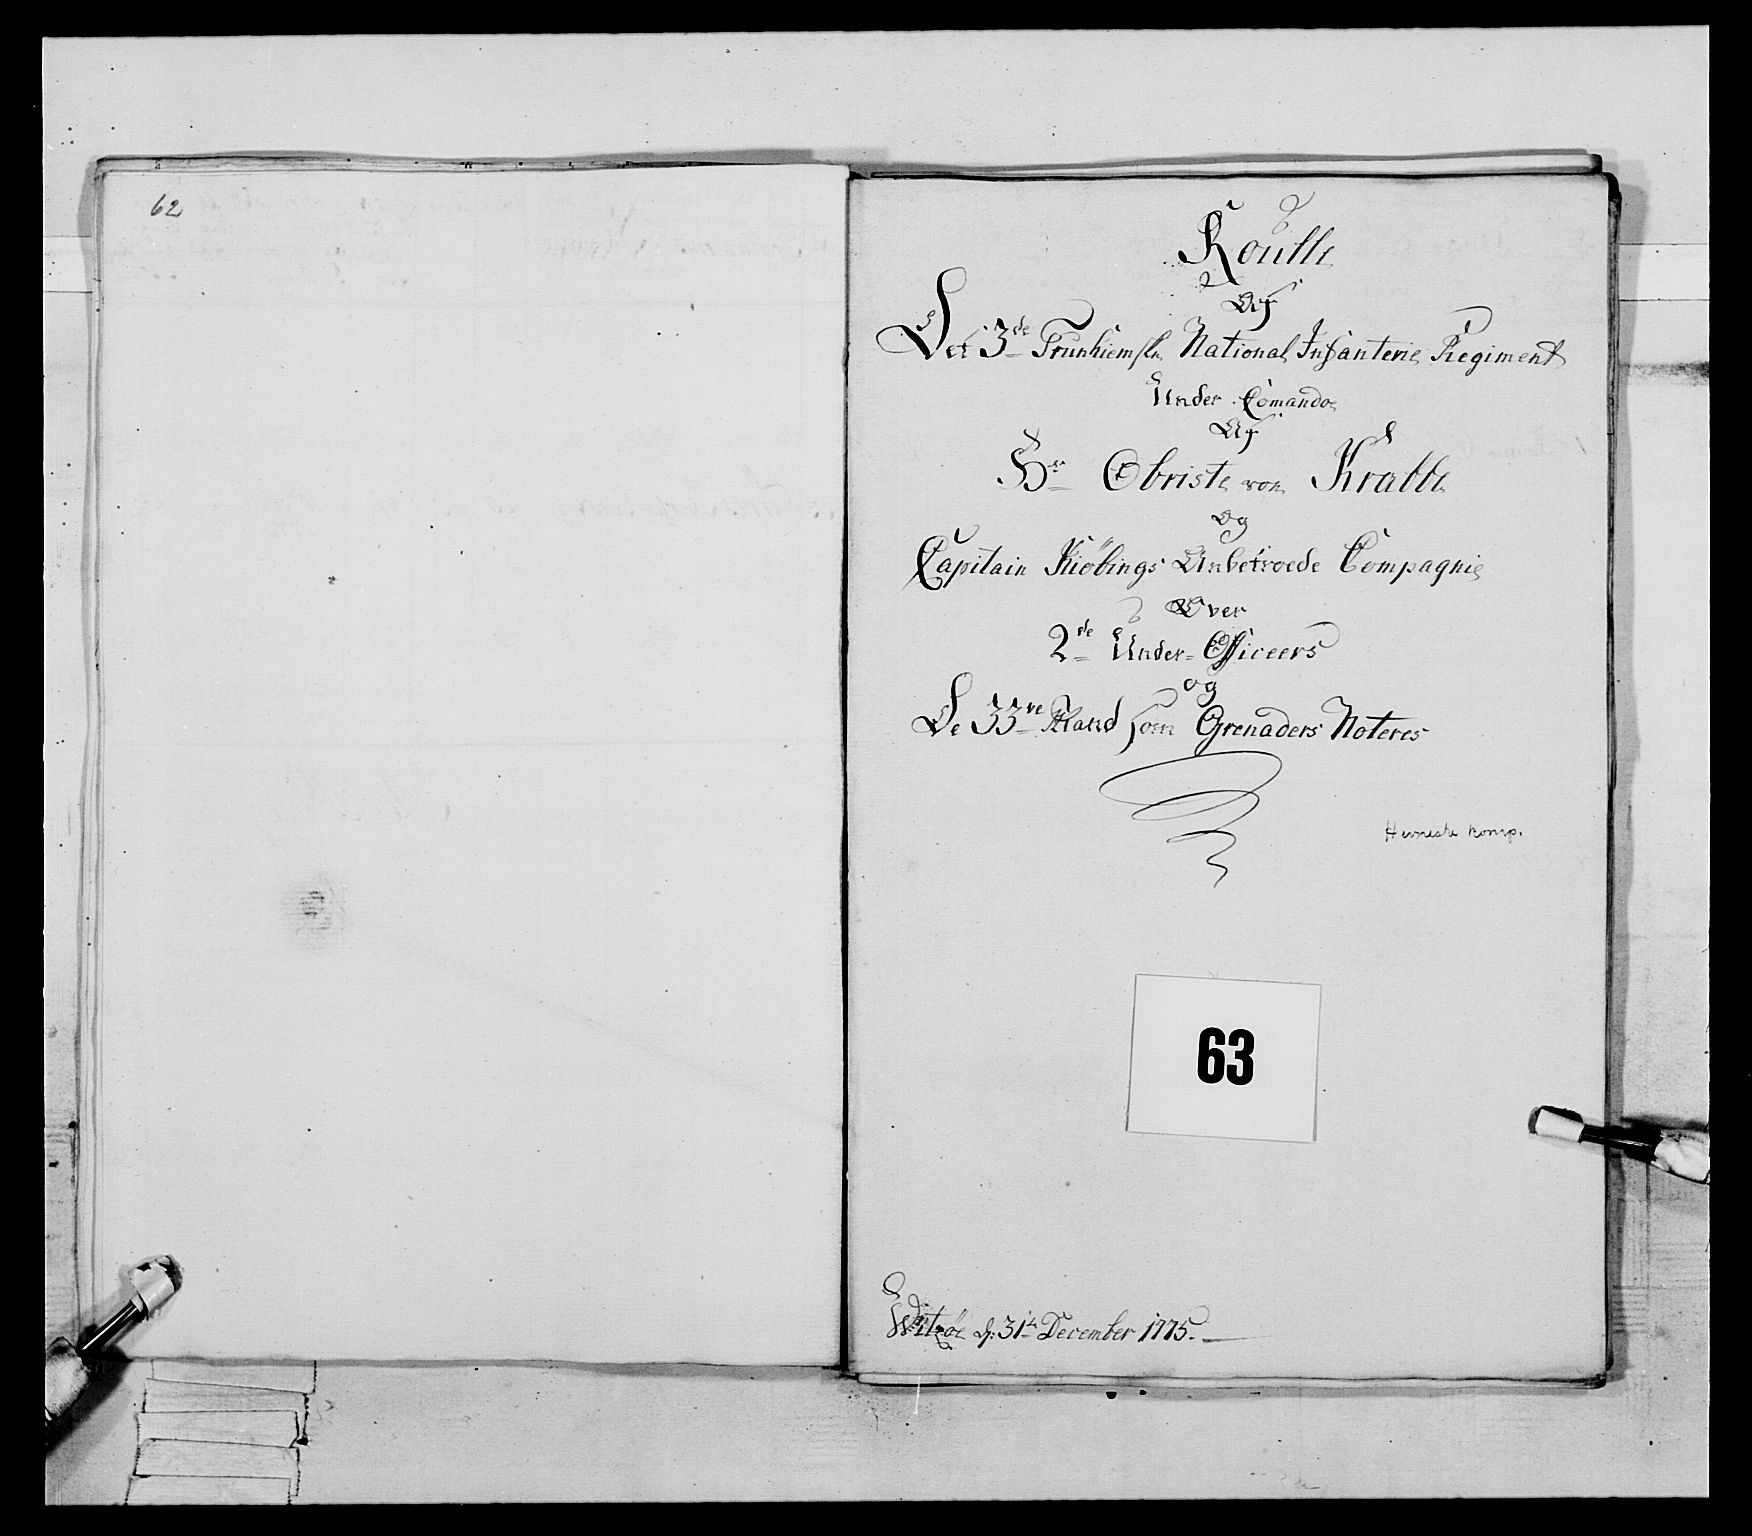 62
Roulle
Af
Det 3de Trunhiemske National Infanterie Regiment
Under Comando
Af
Hr Obriste von Krabbe
Og
Capitain Kiöbings Anbetroede Compagnie
Over
2de Under-Officeers
og
De 33ve Mand som Grenaders Noteres
Hevneske komp.
63
d: 31te December 1775.